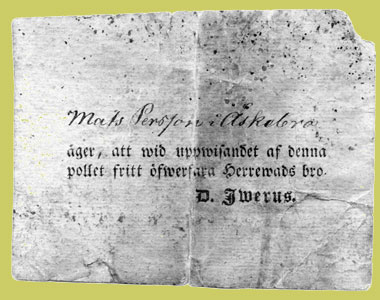 Mats Persson i Äskebro
äger, att wid uppwisandet af denna
pollet fritt öfwerfara Herrewads bro.
D. Jwerus.